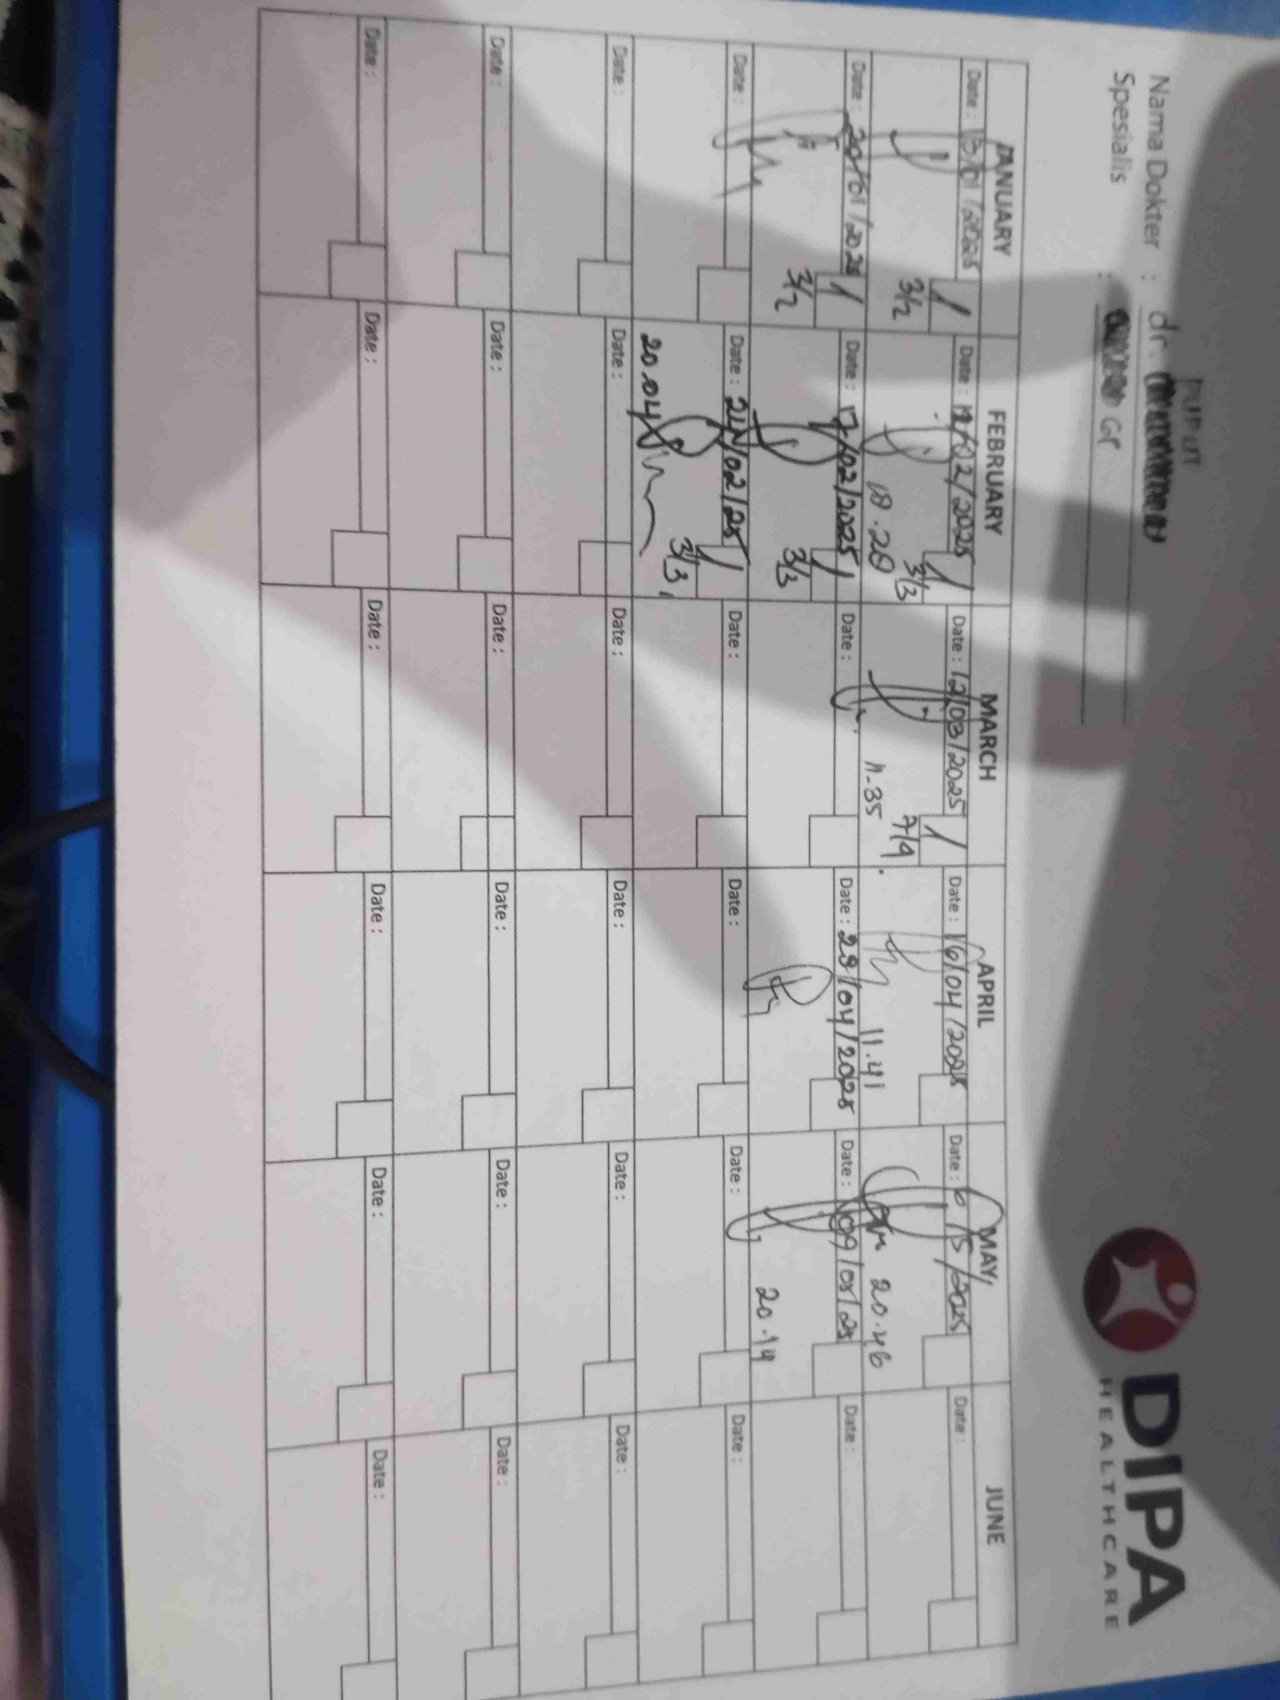 DIPA
HEALTHCARE
PUPUT
Nama Dokter : dr.
Spesialis : GP
JANUARY FEBRUARY MARCH APRIL MAY JUNE
Date : 13/01/2025 Date : 12/02/2025 Date : 12/03/2025 Date : 16/04/2025 Date : 6/5/2025 Date :
3/2 18.28 3/3 11.35 7/4 11.41 20.46
Date : 20/01/2025 Date : 17/02/2025 Date : Date : 29/04/2025 Date : 09/05/25 Date :
3/2 3/3 20.14
Date : Date : 24/02/25 Date : Date : Date : Date :
20.04 3/3
Date : Date : Date : Date : Date : Date :
Date : Date : Date : Date : Date : Date :
Date : Date : Date : Date : Date : Date :